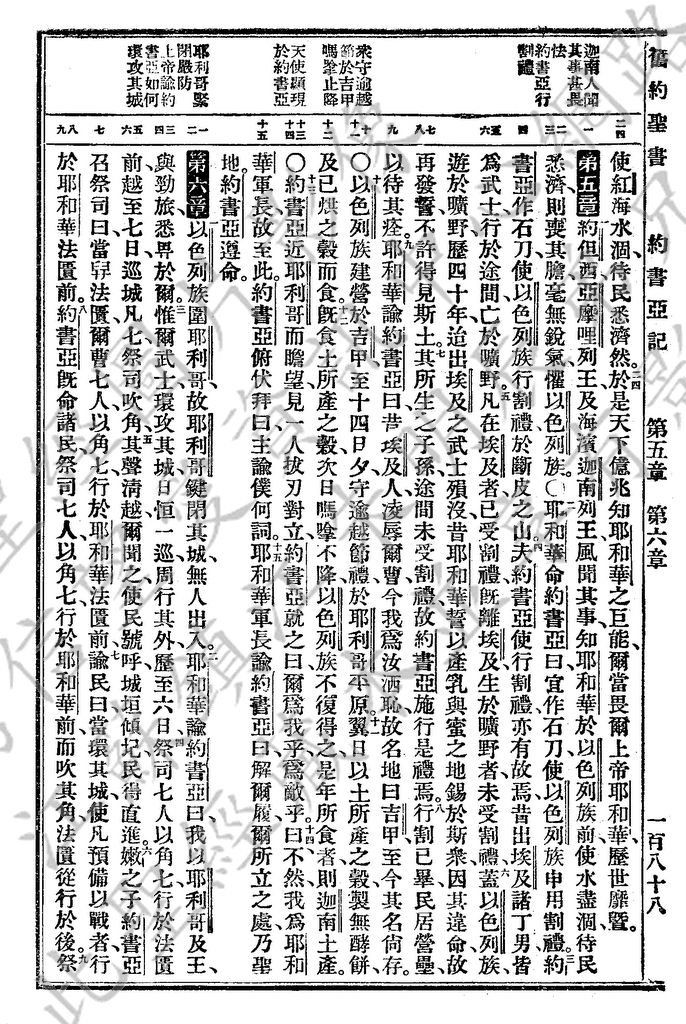 舊約聖書 約書亞記 第五章 第六章 一百八十八
迦南人聞
其事甚畏
怯
約書亞行
割禮
乘守逾越
節於吉甲
嗎嗱止降
天使顯現
於約書亞
耶利哥緊
閉嚴防
上帝諭約
書亞如何
環攻其城
二四
一
二
三
四
五
六
七
八
九
十
十一
十二
十三
十四
十五
一
二
三
四
五
六
七
八
九
使紅海水涸、待民悉濟然、二四於是天下億兆知耶和華之巨能、爾當畏爾上帝耶和華歷世靡曁。
第五章 約但西亞摩哩列王、及海濱迦南列王、風聞其事、知耶和華於以色列族前、使水盡涸、待民
悉濟、則喪其膽、毫無銳氣、懼以色列族。○二耶和華命約書亞曰、宜作石刀、使以色列族申用割禮、三約
書亞作石刀、使以色列族行割禮於斷皮之山、四夫約書亞使行割禮、亦有故焉、昔出埃及諸丁男、皆
爲武士、行於途間、亡於曠野。五凡在埃及者、已受割禮、旣離埃及、生於曠野者、未受割禮、六蓋以色列族
遊於曠野、歷四十年、迨出埃及之武士殞沒、昔耶和華誓以產乳與蜜之地、錫於斯衆、因其違命、故
再發誓、不許得見斯土、七其所生之子孫、途間未受割禮、故約書亞施行是禮焉。八行割已畢、民居營壘、
以待其痊、九耶和華諭約書亞曰、昔埃及人凌辱爾曹、今我爲汝洒恥、故名地曰吉甲、至今其名尙存。
○十以色列族建營於吉甲、至十四日夕、守逾越節禮於耶利哥平原、十一翼日以土所產之穀、製無酵餅、
及已烘之穀而食、十二旣食土所產之穀、次日嗎嗱不降、以色列族不復得之、是年所食者、則迦南土產。
○十三約書亞近耶利哥、而瞻望見一人、拔刃對立、約書亞就之曰、爾爲我乎、爲敵乎、十四曰、不然、我爲耶和
華軍長、故至此、約書亞俯伏拜曰、主諭僕何詞、十五耶和華軍長諭約書亞曰、解爾履、爾所立之處、乃聖
地、約書亞遵命。
第六章 以色列族圍耶利哥、故耶利哥鍵閉其城、無人出入、二耶和華諭約書亞曰、我以耶利哥及王、
與勁旅、悉畀於爾、三惟爾武士環攻其城、日恒一巡、周行其外、歷至六日、四祭司七人以角七、行於法匱
前、越至七日、巡城凡七、祭司吹角、五其聲淸越、爾聞之、使民號呼、城垣傾圮、民得直進、六嫩之子約書亞
召祭司曰、當舁法匱、爾曹七人以角七、行於耶和華法匱前、七諭民曰、當環其城、使凡預備以戰者、行
於耶和華法匱前、八約書亞旣命諸民、祭司七人以角七、行於耶和華前、而吹其角、法匱從行於後、九祭